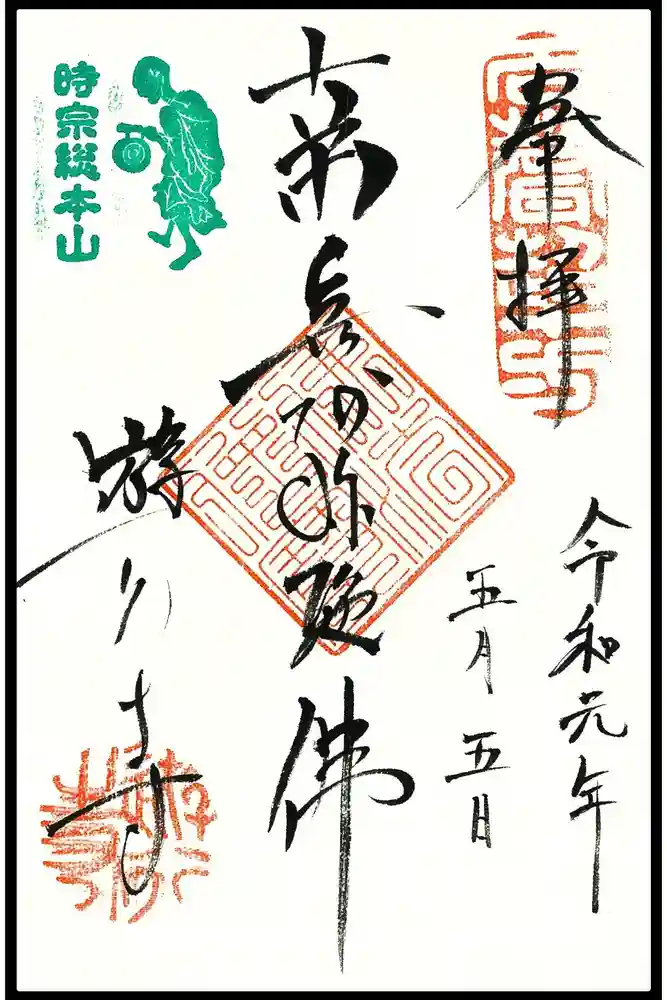 奉拝
令和元年
五月五日
南無阿弥陀佛
遊行寺
時宗総本山